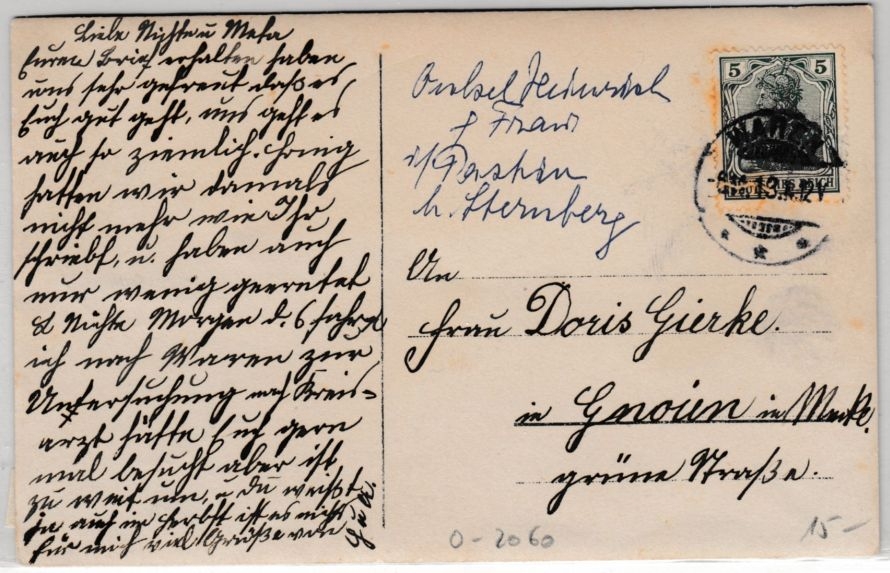 Liebe Nichte u Meta
Euren Brief erhalten haben
uns sehr gefreut daß es
Euch gut geht, uns geht es
auch so ziemlich. Honig
hatten wir damals
nicht mehr wie Ihr
schriebt, u. haben auch
nur wenig geerntet
L Nichte Morgen d. 6 fahre
ich nach Waren zur
Untersuchung nach Kreis-
arzt hätte Euch gern
mal besucht aber ist
zu weit um, u Du weißt
ja auch im Herbst ist es nichts
für mich viel Grüße von
Heinrich
& Frau
Pastin
b. Sternberg
5 5
WAREN
An
Frau Doris Gierke.
in Gnoien in Meckl.
grüne Straße.
0-2060
15-